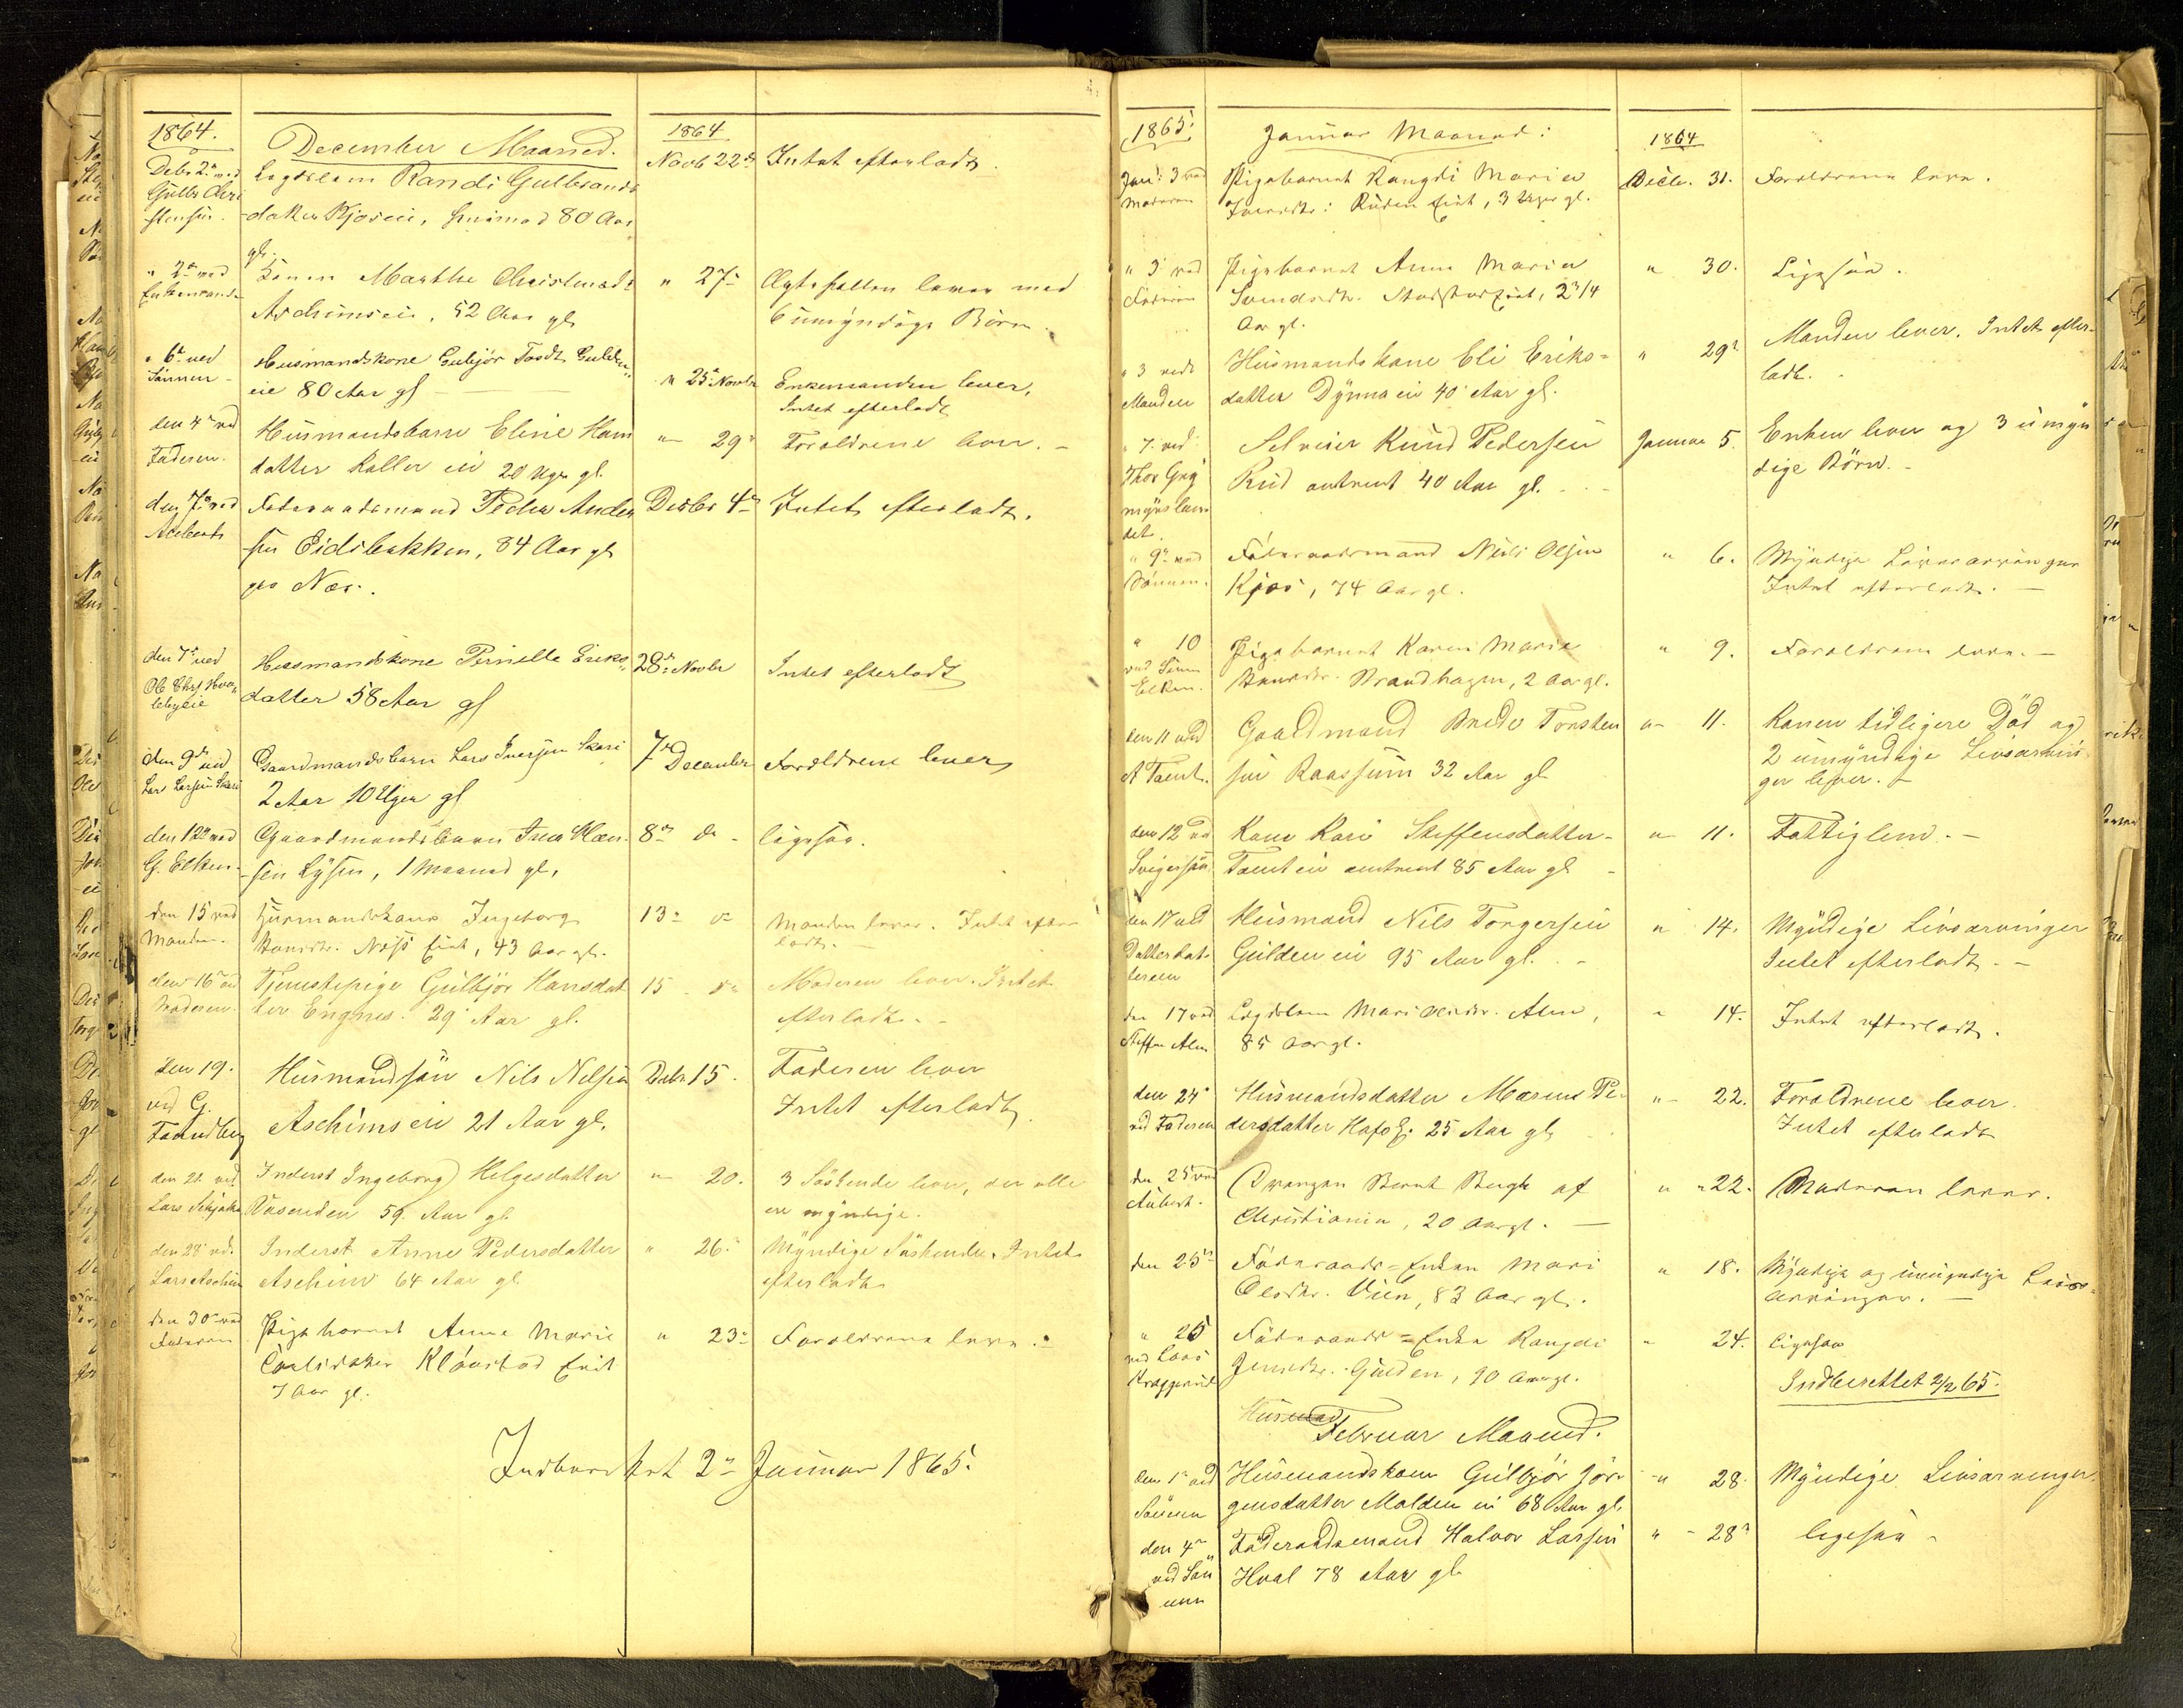 1864.
December Maaned.
1864
Debr 2n ved
Gulbr Chri
stensen.
Lægdslem Randi Gulbrands
datter Kjoseie, Husmad 80 Aar
gl.
Novb 22n
Intet efterladt.
" 2n ved
Enkemand
Konen Marthe Christensd.
Aschimseie, 52 Aar gl.
" 27n
Ægtefællen lever med
6 umyndige Børn.
" 6n ved
Sönnen
Husmandskone Gubjör Tordt Gulden
eie 80 Aar gl
" 25n Novbr
Enkemanden lever,
Intet efterladt
den 4n ved
Faderen.
Husmandsbarn Eline Hans
datter Koller eie 20 Uger gl.
" 29n
Forældrene lever.
den 7n ved
Föderaadsmand Peder Ander
sen Eidsbakken, 84 Aar gl
Decbr 4n
Intet efterladt.
den 7n ved
Ole Chrs Hva
lebyeie
Husmandskone Pernille Eriks
datter 58 Aar gl
28n Novbr
Intet efterladt
den 9n ved
Lars Larsen Skari
Gaardmandsbarn Lars Iversen Skari
2 Aar 10 Uger gl
7n December
Forældrene lever
den 12n ved
G. Elken
Gaardmandsbarn Iver Han
sen Lysen, 1 Maaned gl.
8n do
ligesaa.
den 15 ved
Manden.
Husmandskone Ingeborg
Hansdtr. Næss Eiet, 43 Aar gl.
13n do
Manden lever. Intet efter
ladt.
den 16n ved
Moderen
Tjenestepige Gulbjör Hansdat
ter Engnes. 29 Aar gl.
15 do
Moderen lever. Intet
efterladt.
den 19.
ved G.
Faandberg
Husmandsön Nils Nilsen
Aschimseie 21 Aar gl.
Debr 15.
Faderen lever
Intet efterladt
den 21 ved
Lars
Inderst Ingeborg Helgesdatter
Vasenden 59 Aar gl.
" 20.
3 Söskende lever, der alle
er myndige.
den 28 ved
Lars Aschim
Inderst Anne Pedersdatter
Aschim 64 Aar gl.
" 26.
Myndige Söskende. Intet
efterladt
den 30n ved
Faderen
Pigebarnet Anne Marie
Carlsdatter Klöustad Eiet
7 Aar gl.
" 23n
Forældrene leve.
Indberettet 2n Januar 1865.
1865.
Januar Maaned:
1864
Jan: 3 ved
Moderen
Pigebarnet Rangdi Maria
Iversdtr: Ruden Eiet, 3 Uger gl.
Decbr. 31.
Forældrene leve.
" 3 ved
Faderen
Pigebarnet Anne Maria
Svendsdtr. Eiet, 2 3/4
Aar gl.
" 30.
Ligesaa.
" 3 ved
Manden
Husmandskone Eli Eriks=
datter Dynna eie 40 Aar gl.
" 29n
Manden lever. Intet efter-
ladt.
" 7 ved
Thor Greg
Selveier Knud Pedersen
Rud omtrent 40 Aar gl.
Januar 5.
Enken lever og 3 umyn
dige Börn.
" 9n ved
Sönnen.
Föderaadsmand Nils Olsen
Kjos, 74 Aar gl.
" 6.
Myndige Livsarvinger
Intet efterladt.
" 10
ved
Elken.
Pigebarnet Karen Maria
Hansdtr. Strandhagen, 2 Aar gl.
" 9.
Forældrene leve.
den 11 ved
A Tømt.
Gaardmand Brede Torsten
sen Raassum 32 Aar gl
" 11.
Konen tidligere Död og
2 umyndige Livsarvin
ger lever.
den 12 ved
Svigersön
Kone Kari Steffensdatter
Tømt eie omtrent 85 Aar gl
" 11.
Fattiglem.
den 17 ved
Datterdat
teren
Husmand Nils Torgersen
Gulden eie 95 Aar gl.
" 14.
Myndige Livsarvinger
Intet efterladt.
den 17 ved
Steffen Alm
Lægdslem Mari Alm,
85 Aar gl.
" 14.
Intet efterladt.
den 24n
ved Faderen
Husmandsdatter Maren Pe
dersdatter 25 Aar gl.
" 22.
Forældrene lever.
Intet efterladt
den 25 ved
Aubert.
Drengen Bernt Bergh af
Christiania, 20 Aar gl.
" 22.
Moderen lever.
den 25n
Föderaads=Enken Mari
Olesdtr. Vien, 83 Aar gl.
" 18.
Myndige og umyndige Livs=
arvinger.
" 25
ved Lars
Föderaads=Enke Rangdi
Jensdtr. Gulden, 90 Aar gl.
" 24.
Ligesaa
Indberettet 2/2 65.
Husmand
Februar Maaned.
den 1n ved
Sönnen
Husmandskone Gulbjör Jör
gensdatter Molden eie 68 Aar gl.
" 28.
Myndige Livsarvinger.
den 4n
ved Sön
nen
Föderaadsmand Halvor Larsen
Hval 78 Aar gl.
" 28n
ligesaa